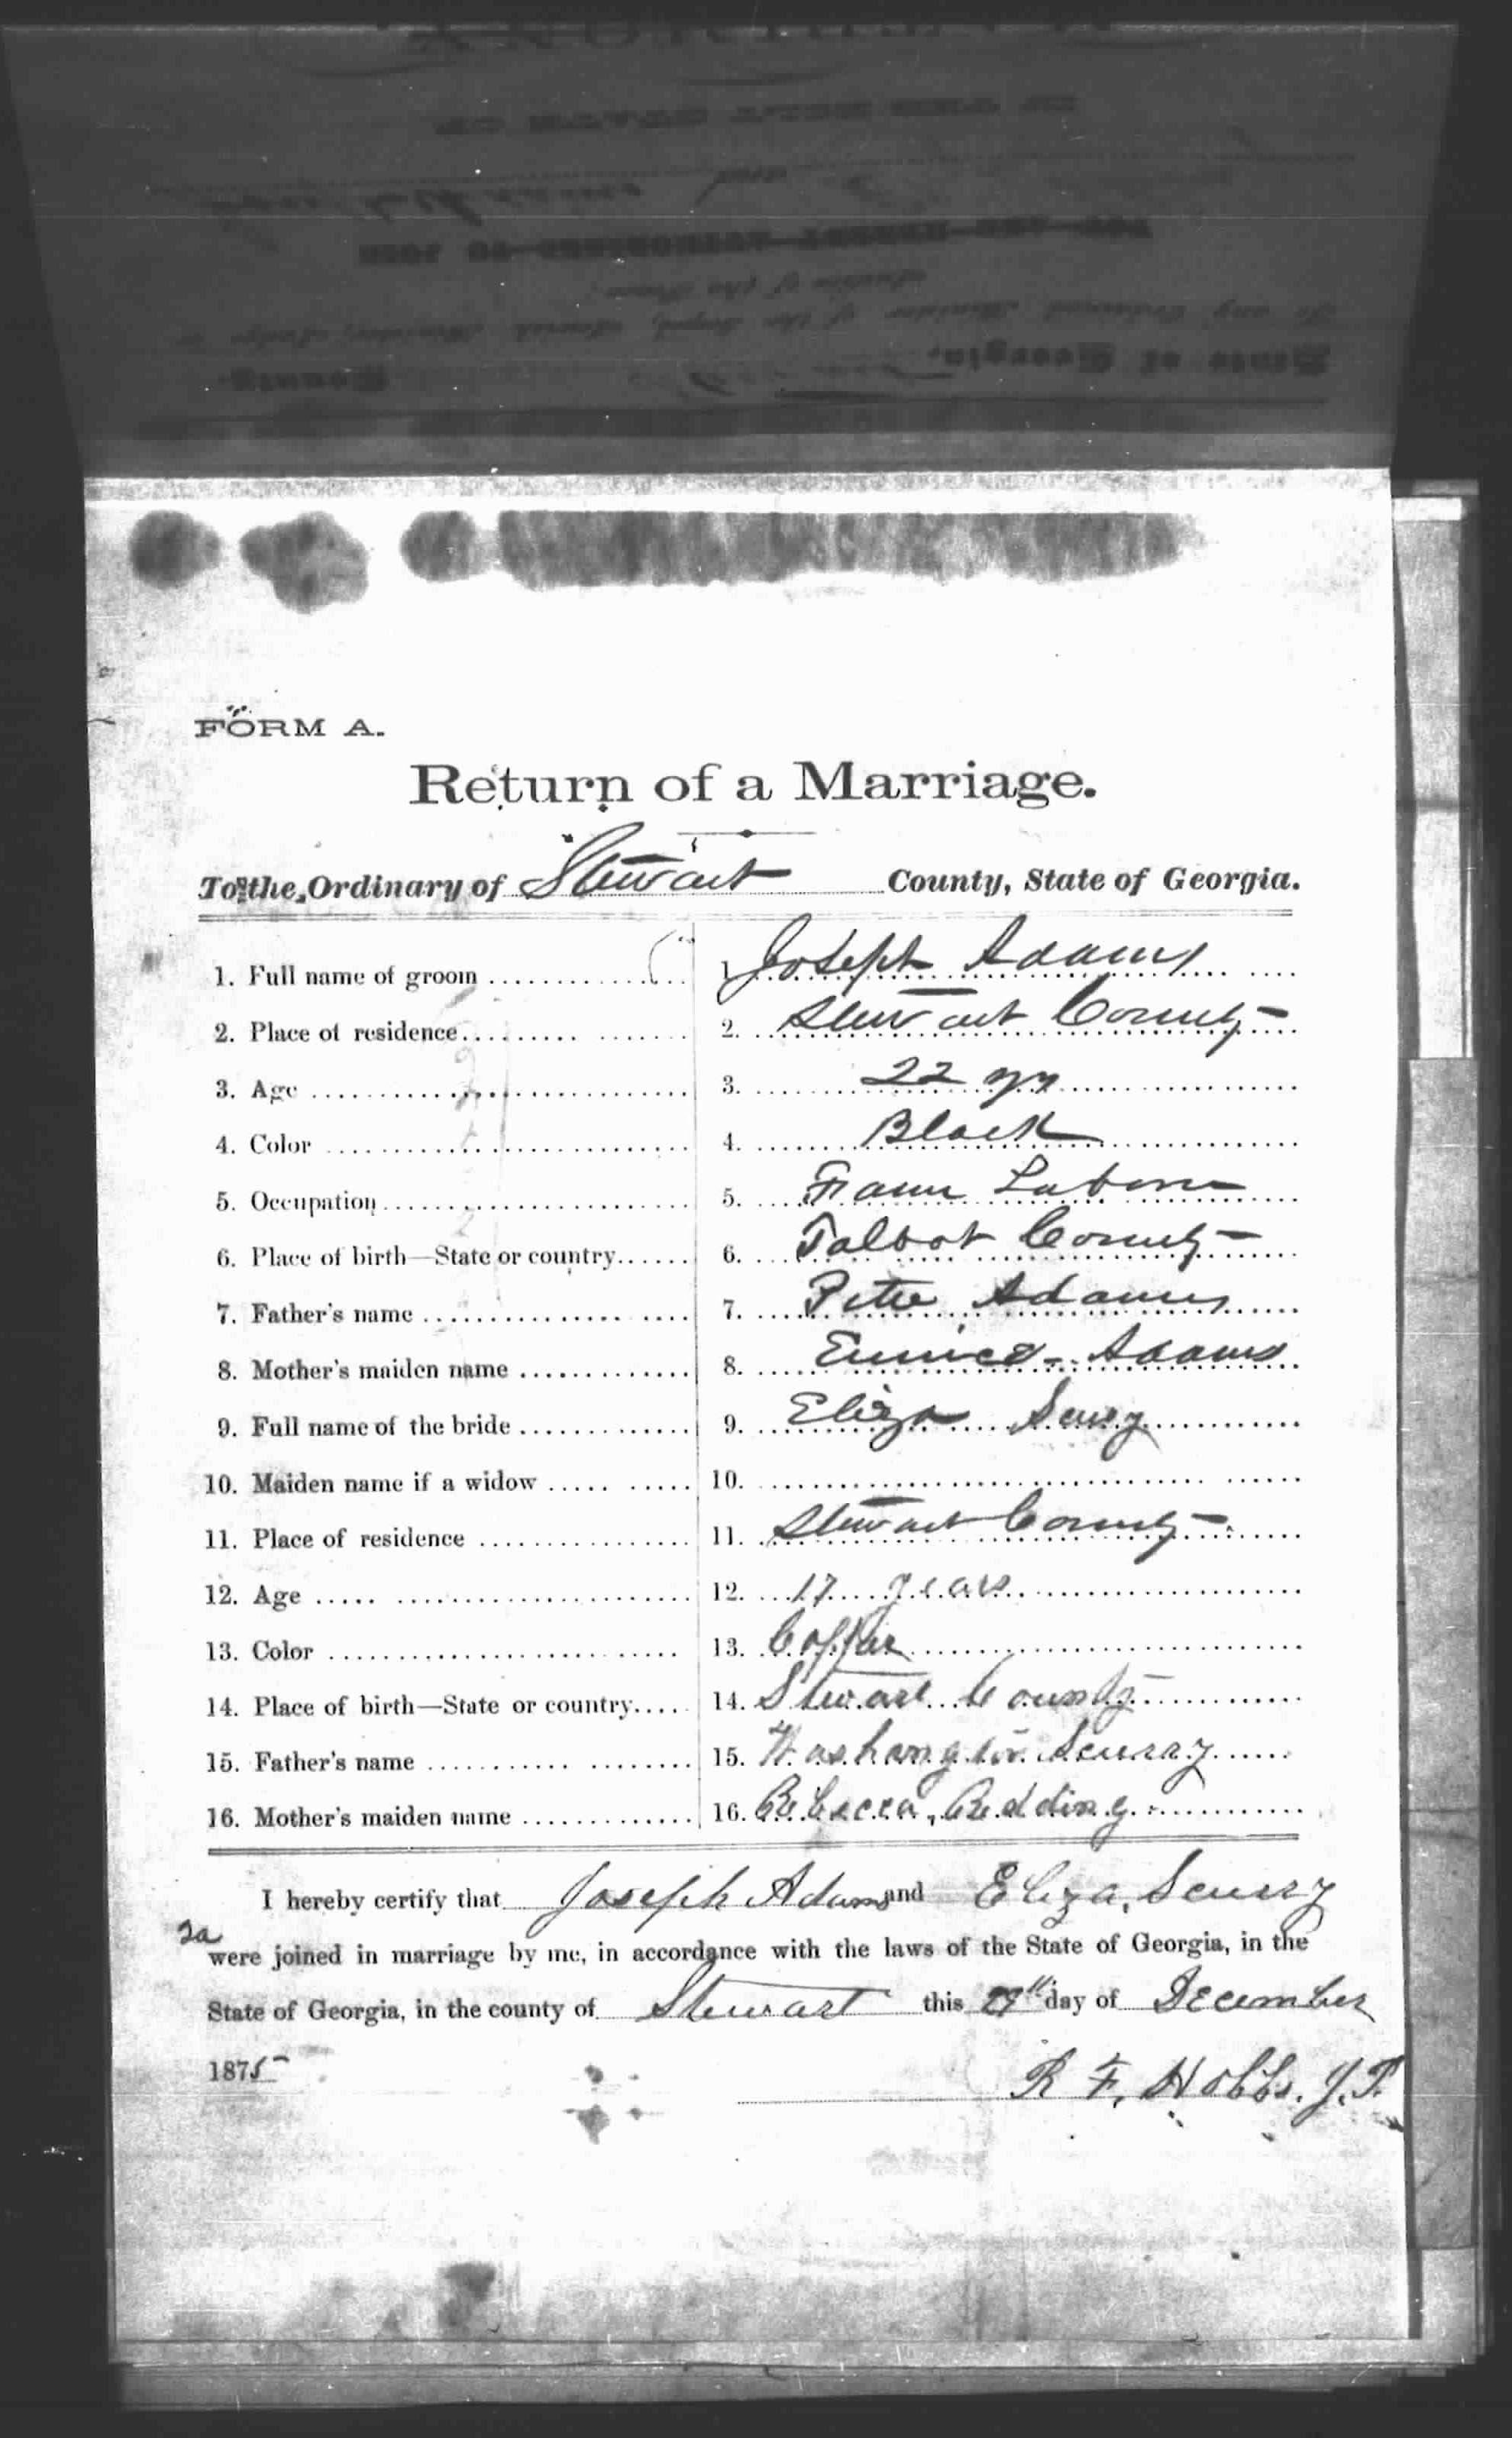 FORM A.
Return of a Marriage.
To the Ordinary of Stewart County, State of Georgia.
1. Full name of groom 1. Joseph Adams
2. Place of residence 2. Stewart County
3. Age 3. 22 yrs
4. Color 4. Black
5. Occupation 5. Farm Labor
6. Place of birth—State or country 6. Talbot County
7. Father's name 7. Peter Adams
8. Mother's maiden name 8. Eunice Adams
9. Full name of the bride 9. Eliza Scurry
10. Maiden name if a widow 10.
11. Place of residence 11. Stewart County
12. Age 12. 17 years
13. Color 13.
14. Place of birth—State or country 14. Stewart County
15. Father's name 15. Washington Scurry
16. Mother's maiden name 16. Rebecca, Redding
I hereby certify that Joseph Adams and Eliza, Scurry
were joined in marriage by me, in accordance with the laws of the State of Georgia, in the
State of Georgia, in the county of Stewart this day of December
1875
R F, Hobbs. J.P.